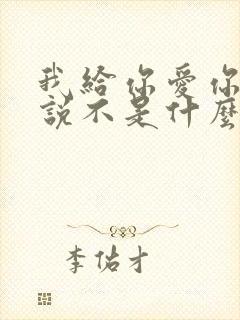 我给你爱你
說不是什麼
李佑才